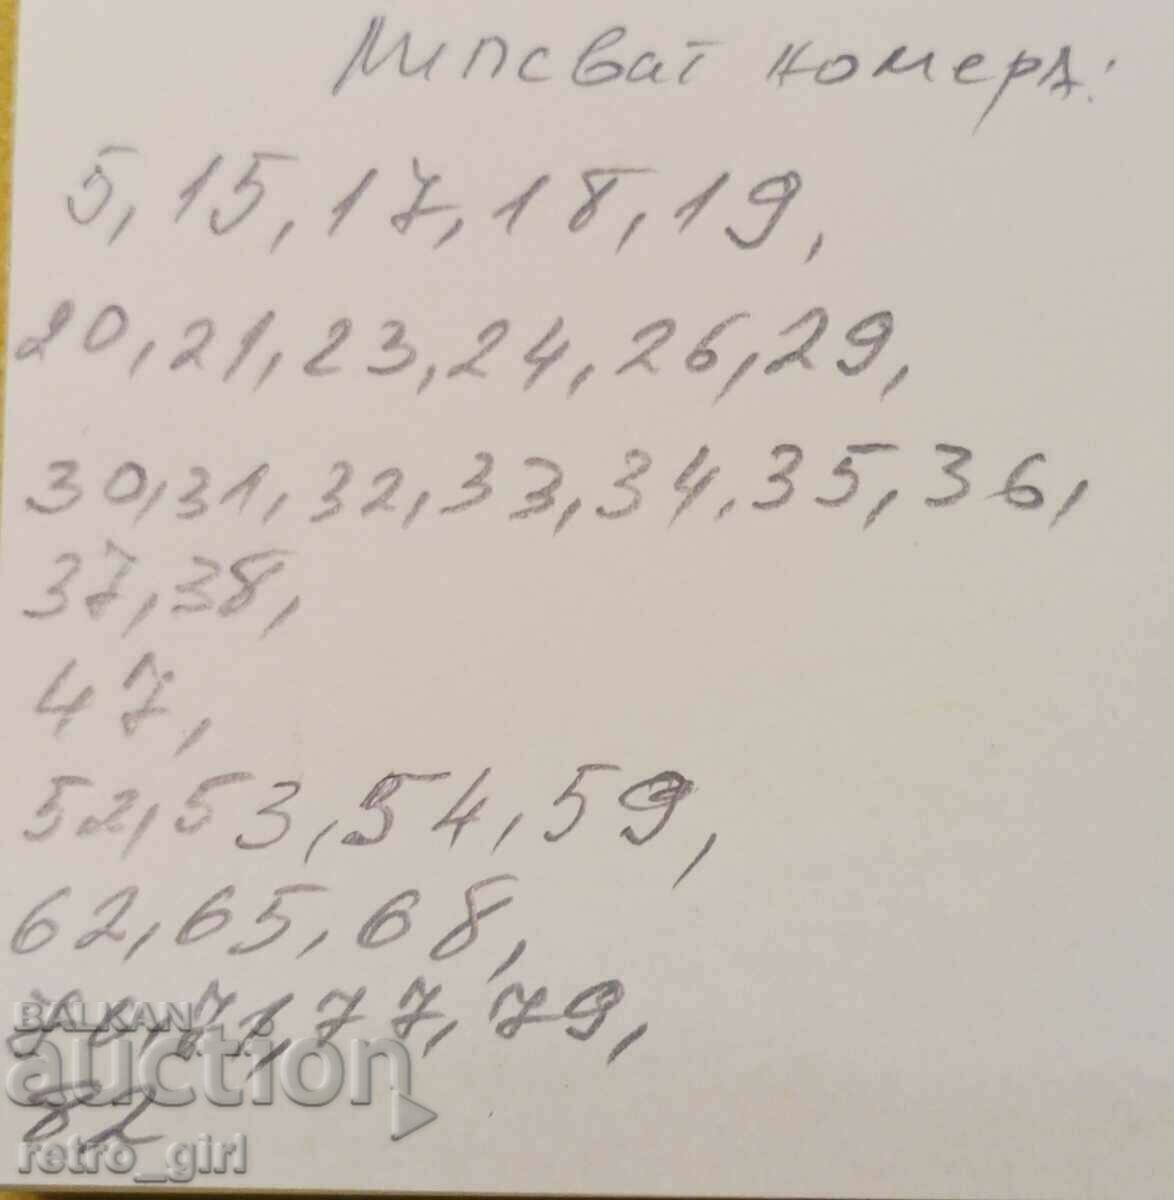 Липсват номера:
5, 15, 17, 18, 19,
20, 21, 23, 24, 26, 29,
30, 31, 32, 33, 34, 35, 36,
37, 38,
47,
52, 53, 54, 59,
62, 65, 68,
70, 71, 77, 79,
82
BALKAN
auction
retro_girl